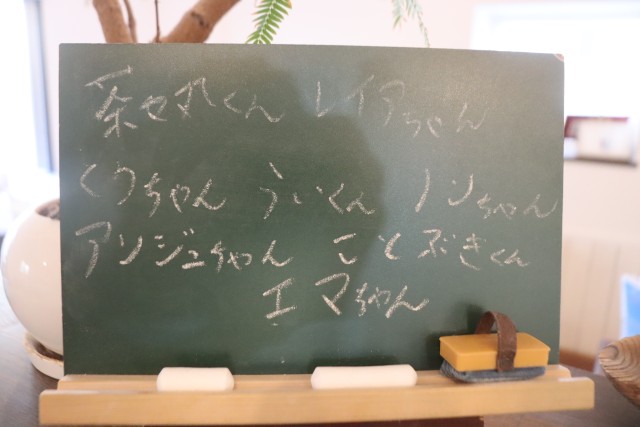 茶せ丸くん レイアちゃん
くうちゃん ういくん ノンちゃん
アンジュちゃん ことぶきくん
エマちゃん